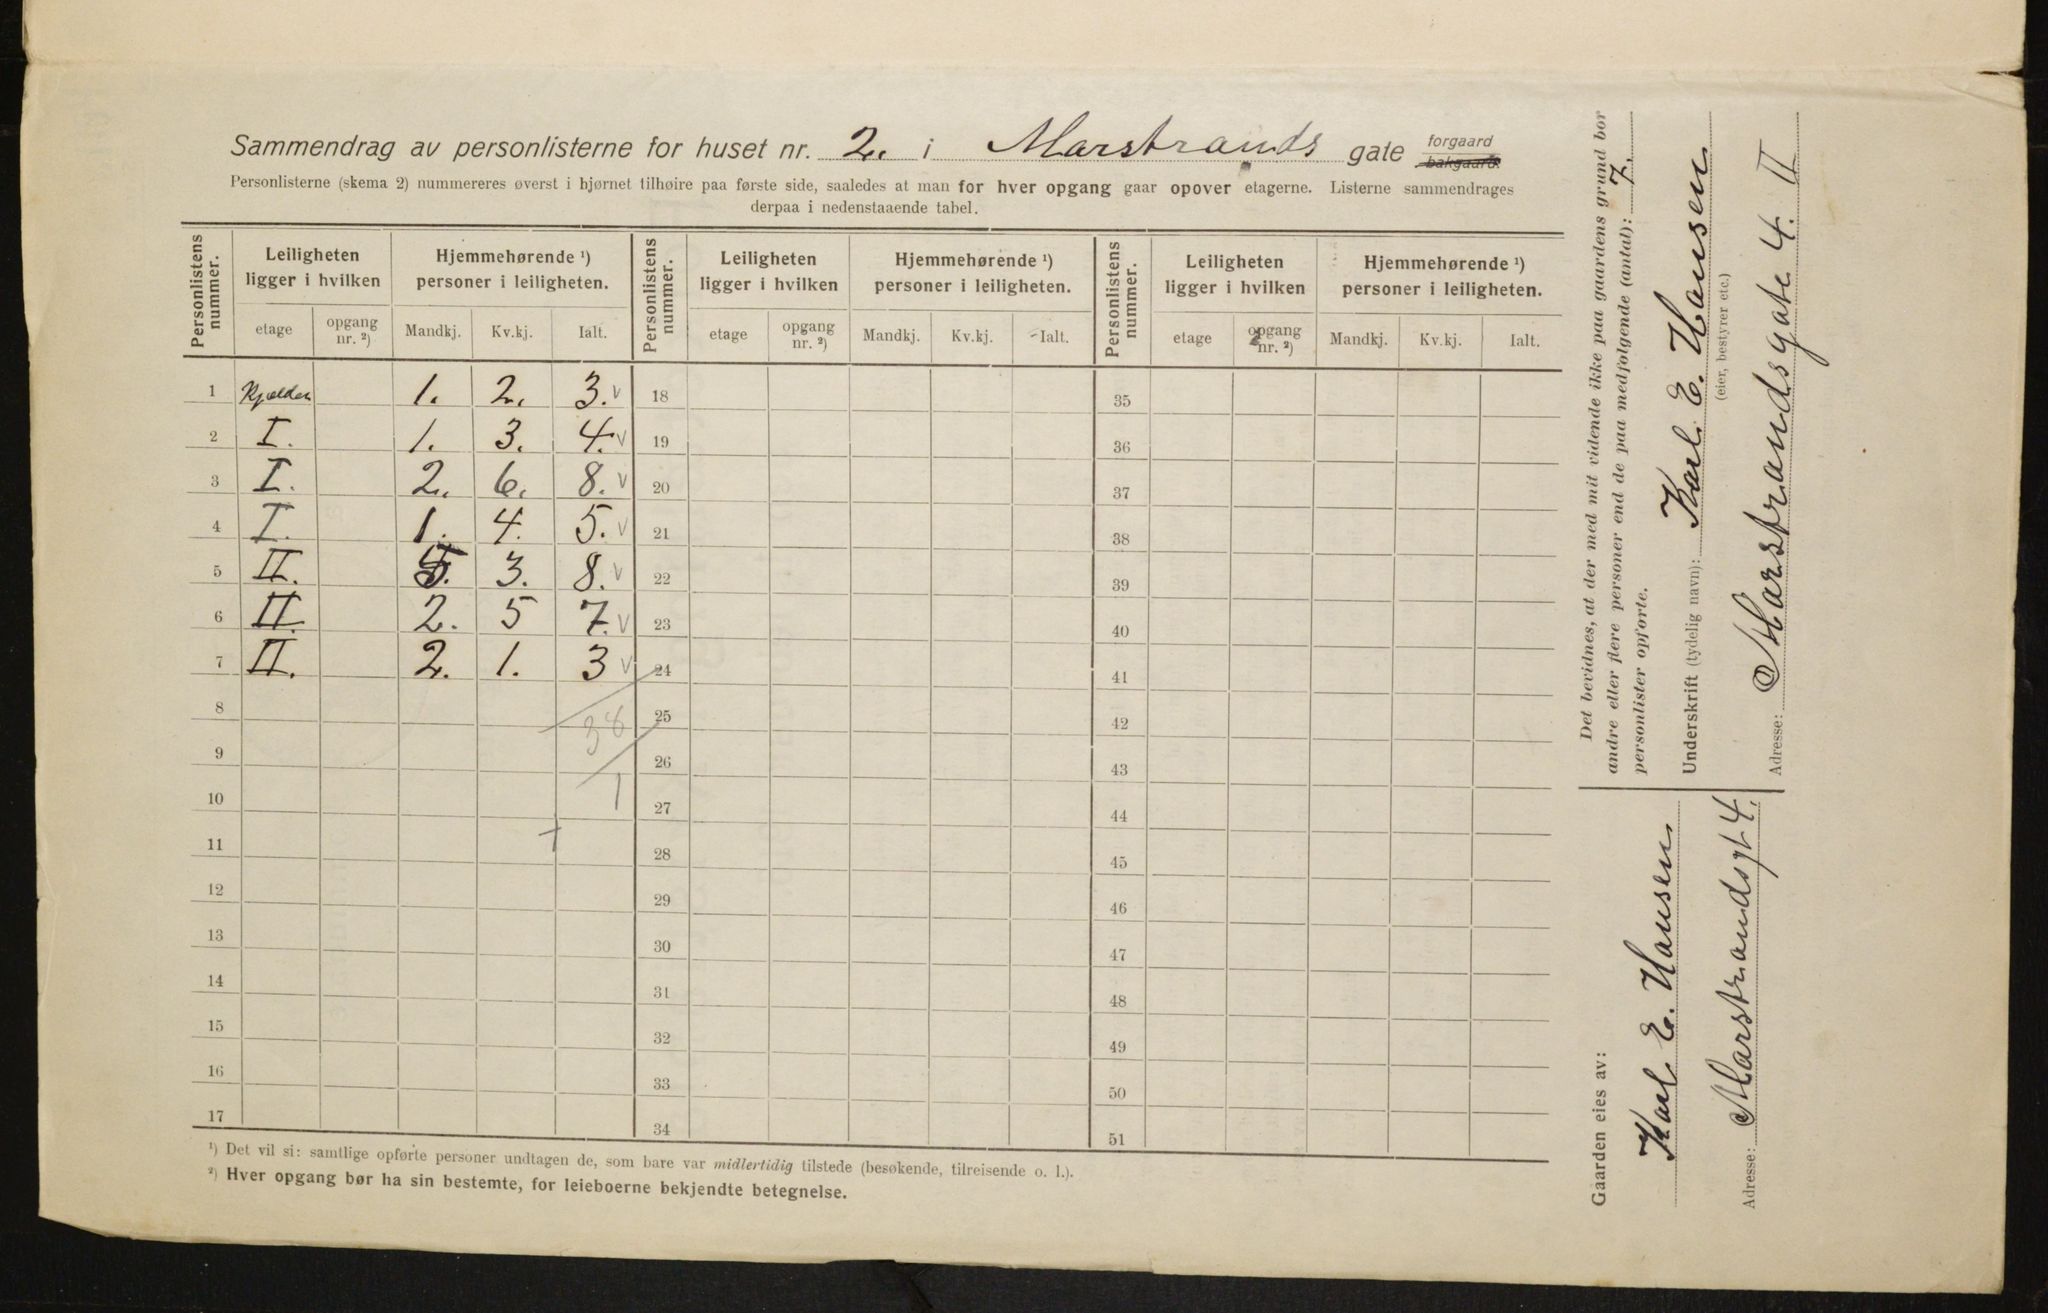 Sammendrag av personlisterne for huset nr. 2. i Marstrands gate forgaard bakgaard.
Personlisterne (skema 2) nummereres øverst i hjørnet tilhøire paa første side, saaledes at man for hver opgang gaar opover etagerne. Listerne sammendrages
derpaa i nedenstaaende tabel.
Personlistens nummer. Leiligheten ligger i hvilken Hjemmehørende ¹) personer i leiligheten. Personlistens nummer. Leiligheten ligger i hvilken Hjemmehørende ¹) personer i leiligheten. Personlistens nummer. Leiligheten ligger i hvilken Hjemmehørende ¹) personer i leiligheten.
etage opgang nr. ²) Mandkj. Kv.kj. Ialt. etage opgang nr. ²) Mandkj. Kv.kj. Ialt. etage opgang nr. ²) Mandkj. Kv.kj. Ialt.
1 Kjælder 1. 2. 3. v 18 35
2 I. 1. 3. 4. v 19 36
3 I. 2. 6. 8. v 20 37
4 I. 1. 4. 5. v 21 38
5 II. 5. 3. 8. v 22 39
6 II. 2. 5 7. v 23 40
7 II. 2. 1. 3 v 24 41
8 38 25 42
9 26 43
10 1 27 44
11 28 45
12 29 46
13 30 47
14 31 48
15 32 49
16 33 50
17 34 51
¹) Det vil si: samtlige opførte personer undtagen de, som bare var midlertidig tilstede (besøkende, tilreisende o. l.).
²) Hver opgang bør ha sin bestemte, for leieboerne bekjendte betegnelse.
Det bevidnes, at der med mit vidende ikke paa gaardens grund bor
andre eller flere personer end de paa medfølgende (antal): 7.
personlister opførte.
Underskrift (tydelig navn): Karl E. Hansen
(eier, bestyrer etc.)
Adresse: Marstrandsgate 4. II
Gaarden eies av:
Karl E. Hansen
Adresse: Marstrandsgt 4.